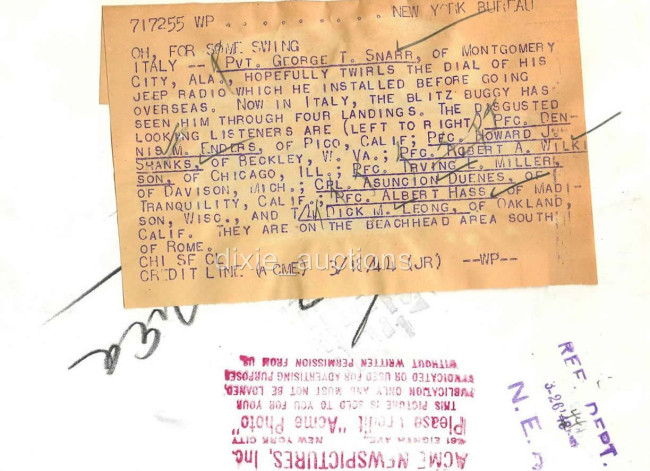 717255 WP . . . . . . . . . NEW YORK BUREAU
OH, FOR SOME SWING
ITALY -- PVT. GEORGE T. SNARR, OF MONTGOMERY
CITY, ALA., HOPEFULLY TWIRLS THE DIAL OF HIS
JEEP RADIO WHICH HE INSTALLED BEFORE GOING
OVERSEAS. NOW IN ITALY, THE BLITZ BUGGY HAS
SEEN HIM THROUGH FOUR LANDINGS. THE DISGUSTED
LOOKING LISTENERS ARE (LEFT TO RIGHT) PFC. DEN-
NIS M. ENDERS, OF PICO, CALIF; PFC. HOWARD J.
SHANKS, OF BECKLEY, W. VA.; PFC. ROBERT A. WILKI
SON, OF CHICAGO, ILL.; PFC. IRVING E. MILLER,
OF DAVISON, MICH.; CPL. ASUNCION DUENES, OF
TRANQUILITY, CALIF.; PFC. ALBERT HASS, OF MADI-
SON, WISC., AND DICK M. LEONG, OF OAKLAND,
CALIF. THEY ARE ON THE BEACHHEAD AREA SOUTH
OF ROME.
CHI SF CO
CREDIT LINE (ACME) 44 (JR) --WP--
dixie_auctions
ACME NEWSPICTURES, Inc.
461 EIGHTH AVE., NEW YORK CITY
Please credit "Acme Photo"
THIS PICTURE IS SOLD TO YOU FOR
PUBLICATION ONLY AND MUST NOT BE LOANED,
SYNDICATED OR USED FOR ADVERTISING PURPOSES
WITHOUT WRITTEN PERMISSION FROM US.
REF. DEPT.
N. E. A